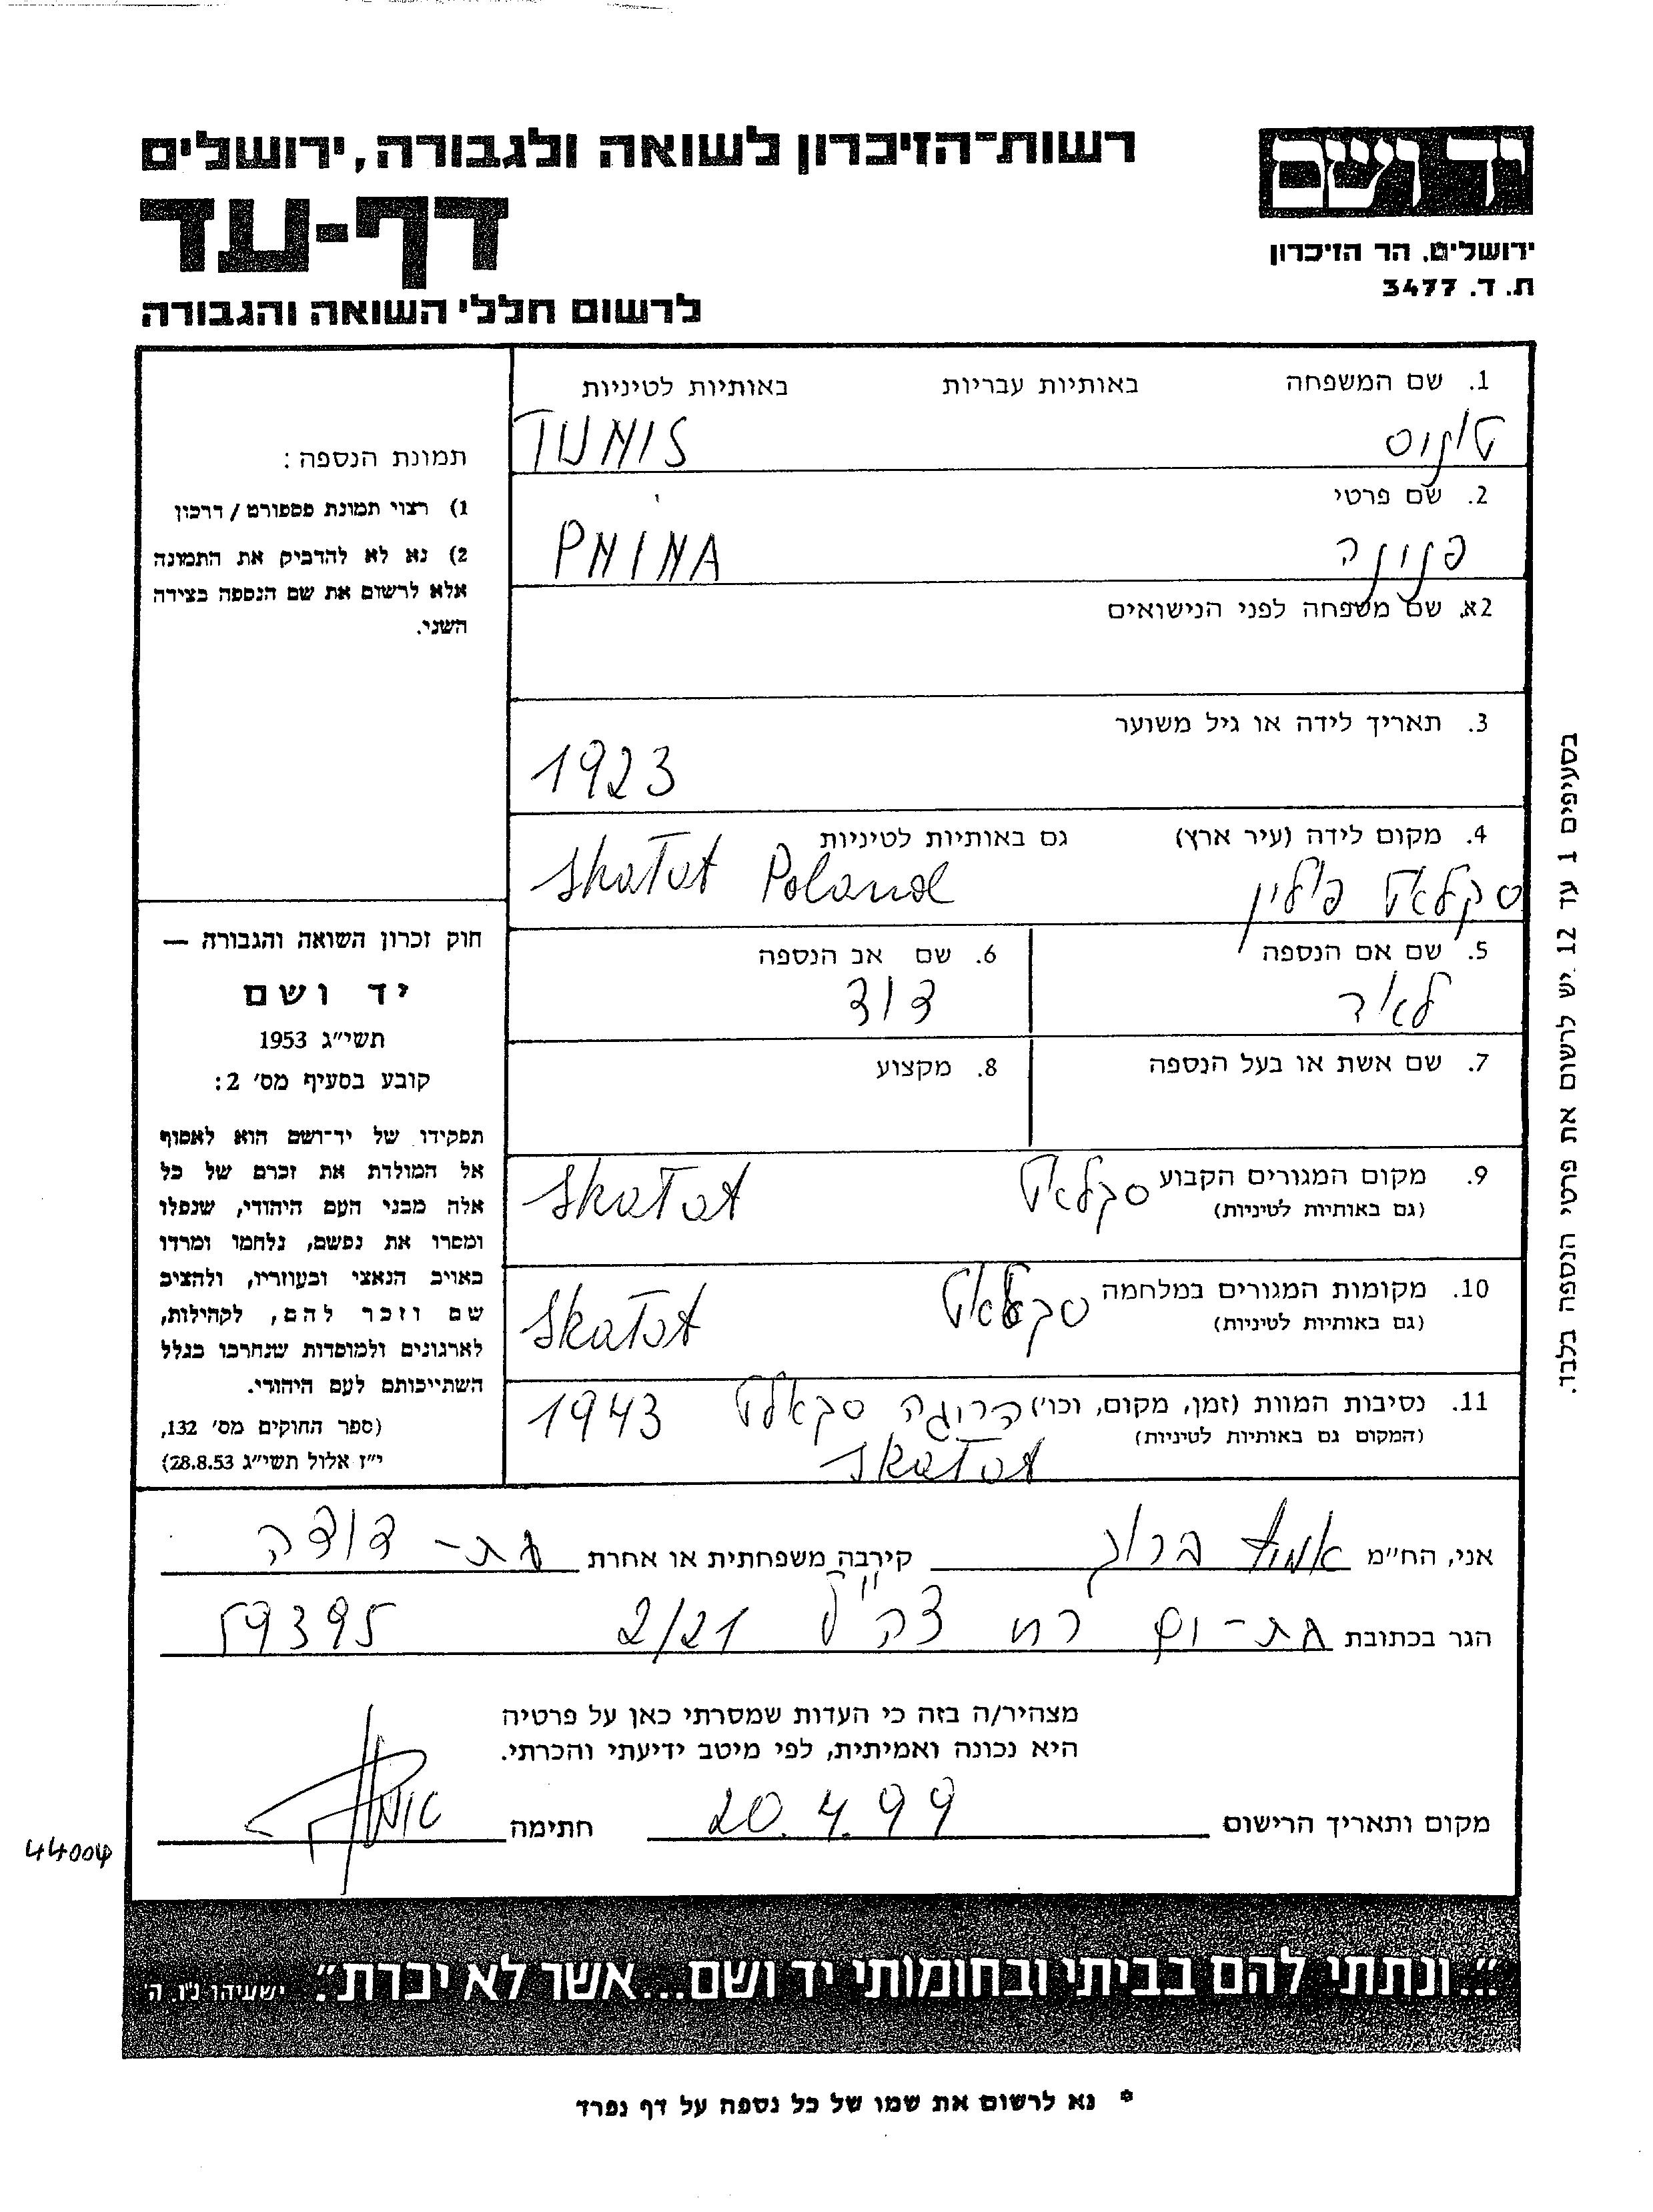 רשות־הזיכרון לשואה ולגבורה, ירושלים
יד ושם
דף-עד
ירושלים. הר הזיכרון
ת. ד. 3477
לרשום חללי השואה והגבורה
1. שם המשפחה באותיות עבריות באותיות לטיניות
TUNIS
2. שם פרטי
פנינה PNINA
2א. שם משפחה לפני הנישואים
3. תאריך לידה או גיל משוער
1923
4. מקום לידה (עיר ארץ) גם באותיות לטיניות
סקלאט פולין Skatat Poland
5. שם אם הנספה
6. שם אב הנספה
דוד
7. שם אשת או בעל הנספה
8. מקצוע
9. מקום המגורים הקבוע סקלאט Skatat
(גם באותיות לטיניות)
10. מקומות המגורים במלחמה סקלאט Skatat
(גם באותיות לטיניות)
11. נסיבות המוות (זמן, מקום, וכו') הרוגה סקאלט 1943
(המקום גם באותיות לטיניות) Skatat
תמונת הנספה:
1) רצוי תמונת פספורט / דרכון
2) נא לא להדביק את התמונה
אלא לרשום את שם הנספה בצידה
השני.
חוק זכרון השואה והגבורה —
יד ושם
תשי״ג 1953
קובע בסעיף מס׳ 2:
תפקידו של יד־ושם הוא לאסוף
אל המולדת את זכרם של כל
אלה מבני העם היהודי, שנפלו
ומסרו את נפשם, נלחמו ומרדו
באויב הנאצי ובעוזריו, ולהציב
שם וזכר להם, לקהילות,
לארגונים ולמוסדות שנחרבו בגלל
השתייכותם לעם היהודי.
(ספר החוקים מס׳ 132,
י״ז אלול תשי״ג 28.8.53)
בסעיפים 1 עד 12 יש לרשום את פרטי הנספה בלבד.
אני, הח״מ ברוך קירבה משפחתית או אחרת בת-דודה
הגר בכתובת בת-ים רח צה״ל 2/21 59395
מצהיר/ה בזה כי העדות שמסרתי כאן על פרטיה
היא נכונה ואמיתית, לפי מיטב ידיעתי והכרתי.
מקום ותאריך הרישום 20.4.99 חתימה
44004
״...ונתתי להם בביתי ובחומותי יד ושם...אשר לא יכרת״. ישעיהו נ״ו ה׳
* נא לרשום את שמו של כל נספה על דף נפרד